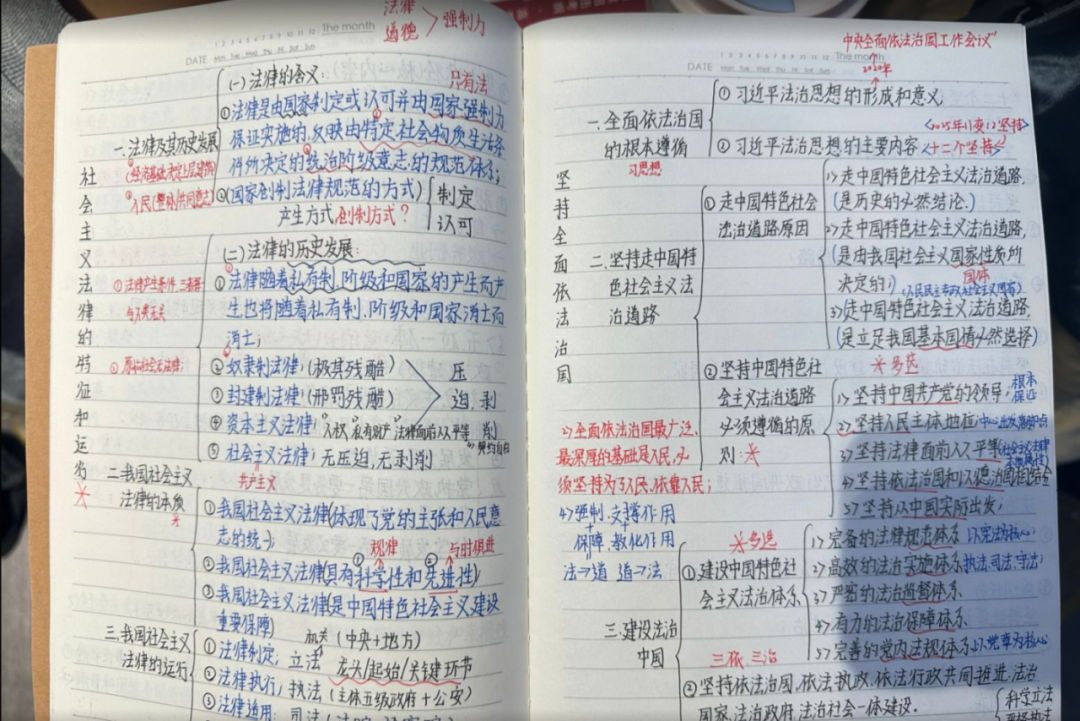 法律
道德 > 强制力
1 2 3 4 5 6 7 8 9 10 11 12 The month
DATE Mon Tue Wed Thu Fri Sat Sun
社会主义法律的特征和运行
一、法律及其历史发展
(经济基础决定上层建筑)
人民(整体/共同意志)
(一)法律的含义:
只有法
①法律是由国家制定或认可并由国家强制力
保证实施的,反映由特定社会物质生活条
件所决定的统治阶级意志的规范体系;
②(国家创制法律规范的方式) { 制定
产生方式 创制方式? 认可
(二)法律的历史发展
①法律随着私有制、阶级和国家的产生而产
生也将随着私有制、阶级和国家消亡而
消亡;
②原始社会无法律;
②奴隶制法律:(极其残酷)
③封建制法律:(刑罚残酷)
④资本主义法律:"人权、私有财产、法律面前人人平等
压迫,剥削
⑤社会主义法律:无压迫,无剥削
共产主义
二、我国社会主义
法律的本质
①我国社会主义法律(体现了党的主张和人民意
志的统一);
①规律 ②与时俱进
②我国社会主义法律(具有科学性和先进性)
③我国社会主义法律(是中国特色社会主义建设
重要保障)
三、我国社会主义
法律的运行
机关(中央+地方)
①法律制定:立法 龙头/起始/关键环节
②法律执行:执法(主体五级政府+公安)
③法律适用:司法
中央全面依法治国工作会议"
2020年
1 2 3 4 5 6 7 8 9 10 11 12 The month
DATE Mon Tue Wed Thu Fri Sat Sun
坚持全面依法治国
一、全面依法治国
的根本遵循
习思想
①习近平法治思想的形成和意义
<2025年11变12坚持>
②习近平法治思想的主要内容<十二个坚持>
二、坚持走中国特
色社会主义法
治道路
①走中国特色社会
主义法治道路原因
1)走中国特色社会主义法治道路,
(是历史的必然结论.)
2)走中国特色社会主义法治道路,
(是由我国社会主义国家性质所
决定的)
国体
3)走中国特色社会主义法治道路,
(是立足我国基本国情必然选择)
②坚持中国特色社
会主义法治道路
必须遵循的原
则:
多选
1)坚持中国共产党的领导,根本保证
2)坚持人民主体地位;
3)坚持法律面前人人平等
4)坚持依法治国和以德治国相结合
5)坚持从中国实际出发;
2)全面依法治国最广泛、
最深厚的基础是人民,必
须坚持为了人民,依靠人民;
4)强制 支撑作用
保障、教化作用
法→道 道→法
三、建设法治
中国
多选
①建设中国特色社
会主义法治体系
1)完备的法律规范体系 以宪法为核心
2)高效的法治实施体系 执法、司法、守法
3)严密的法治监督体系
4)有力的法治保障体系
5)完善的党内法规体系 以党章为核心
三依 三治
②坚持依法治国、依法执政、依法行政共同推进,法治
国家、法治政府、法治社会一体建设.
科学立法